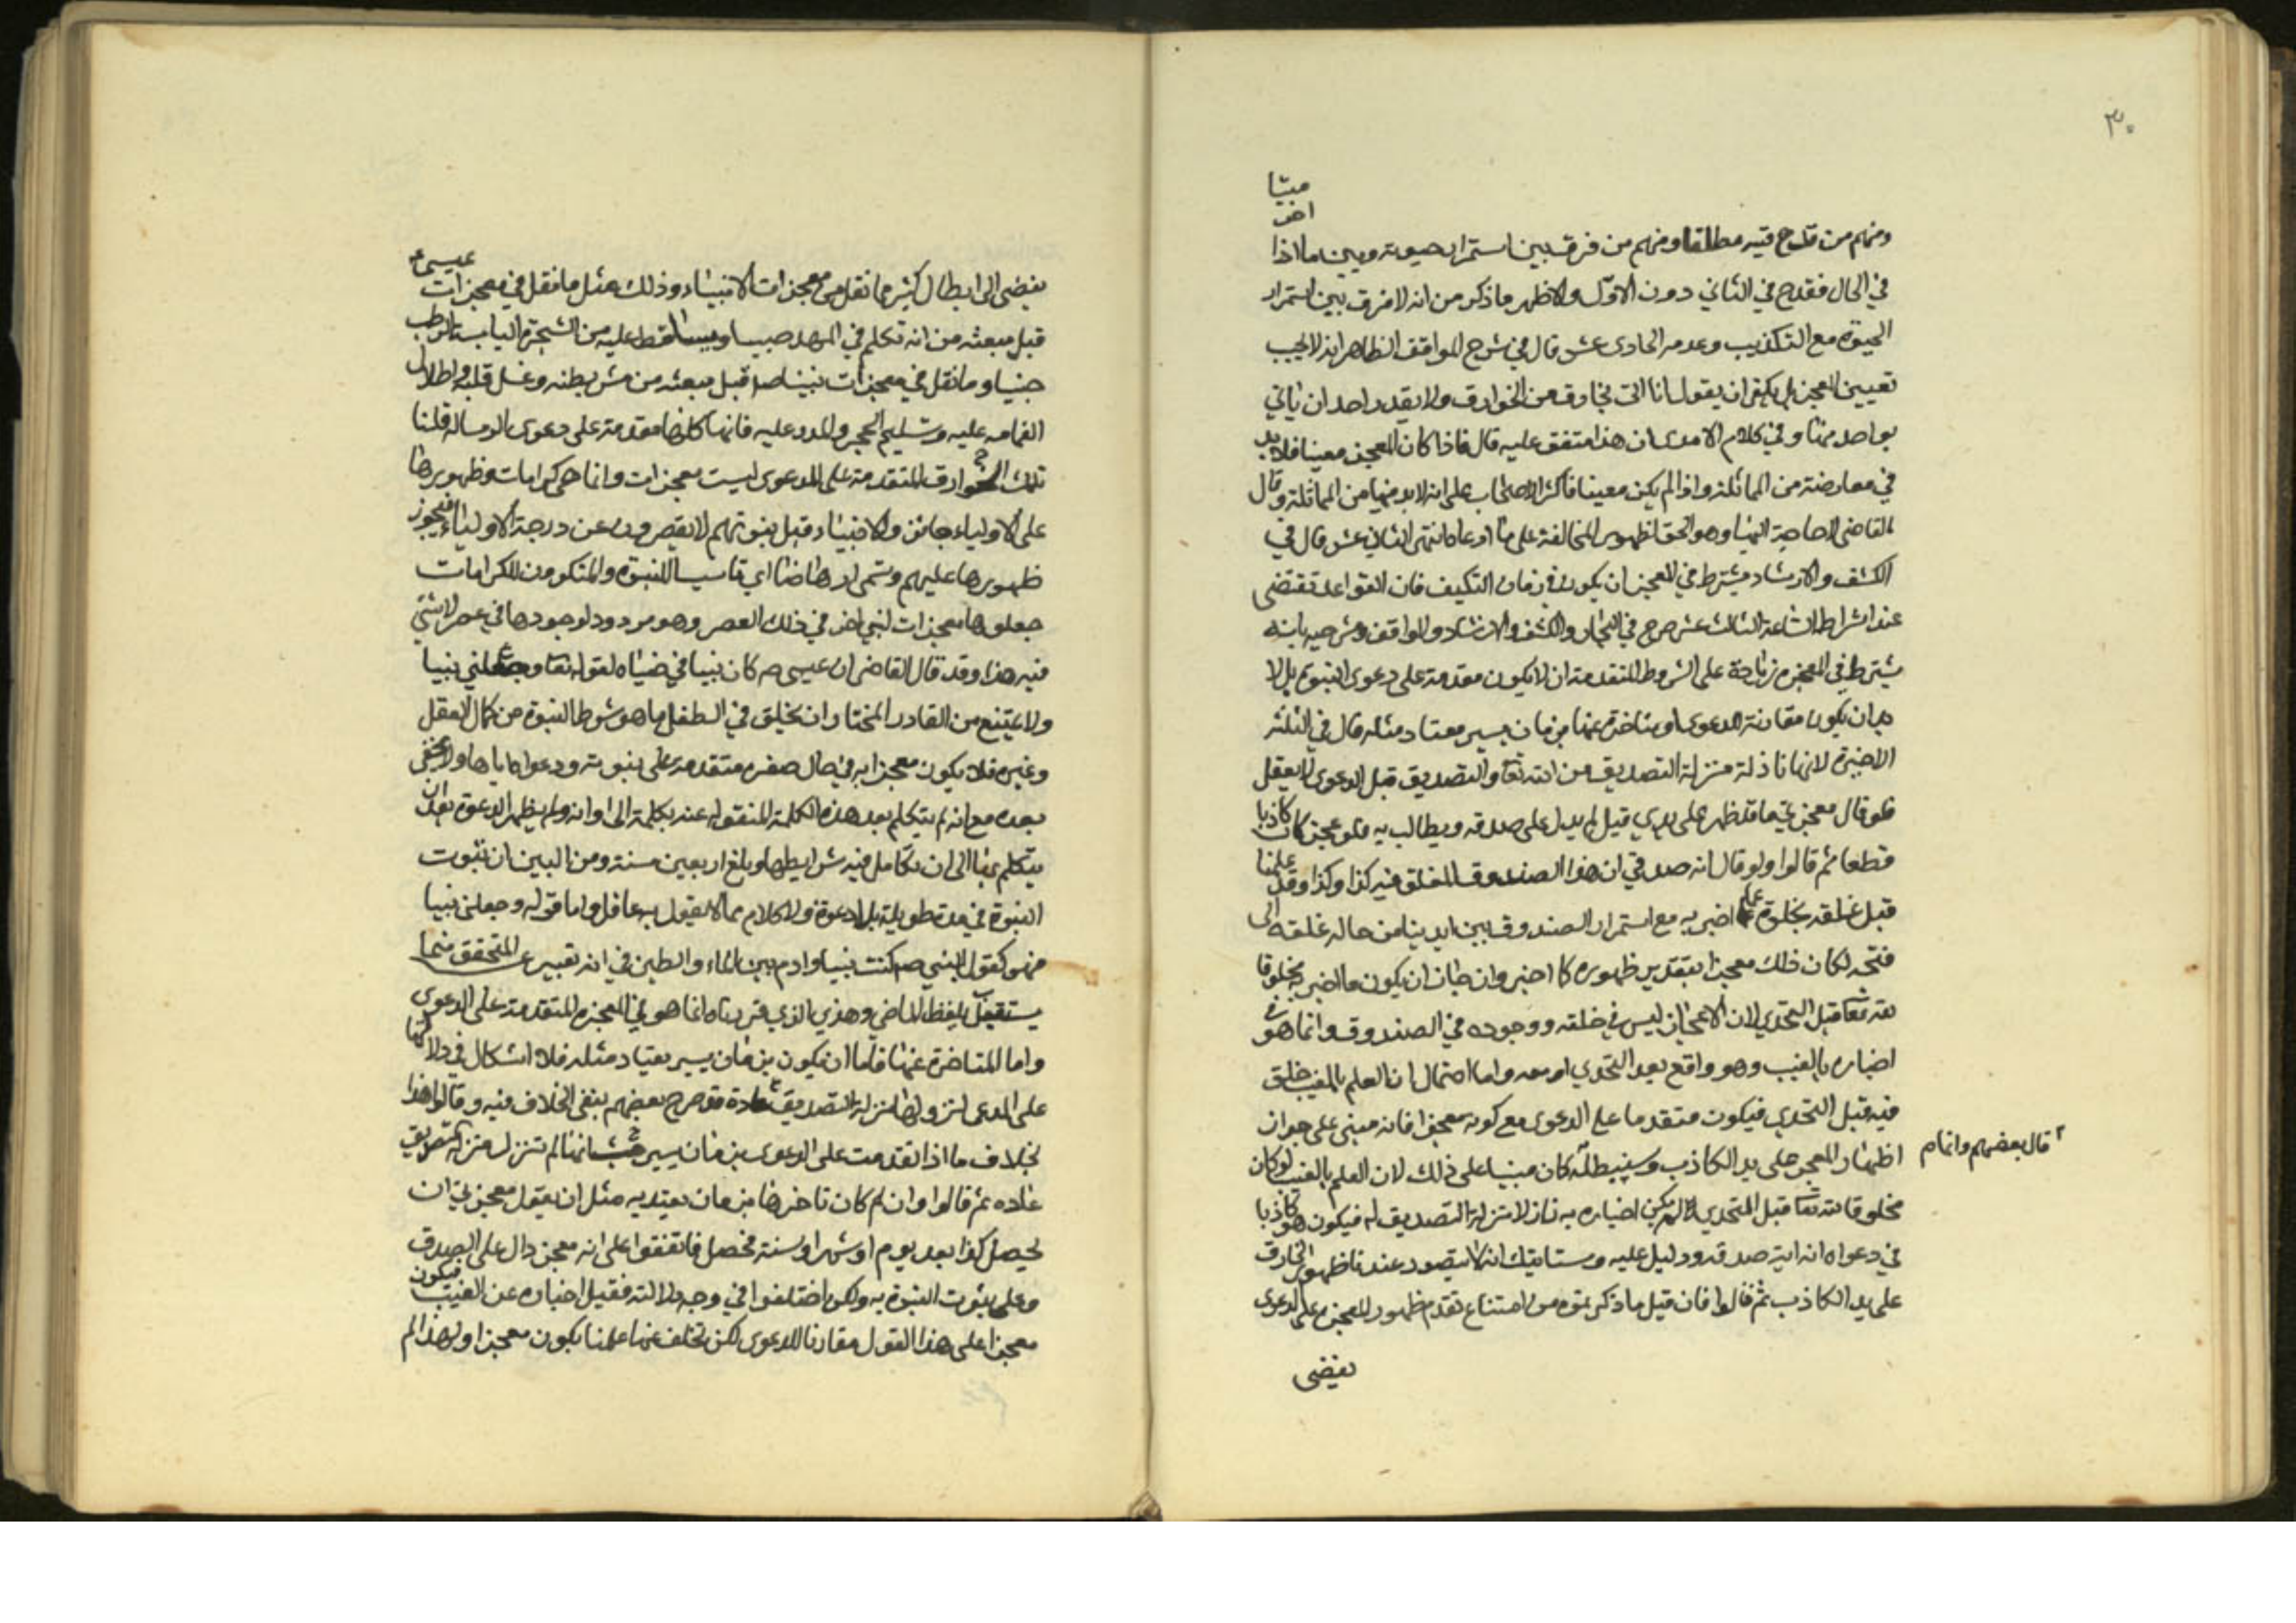 ٣٠
ميتا
اخر
ومنهم من قدح فيه مطلقا ومنهم من فرق بين استمرار حيوته وبين ما اذا
في الحال فقدح في الثاني دون الاول والاظهر ما ذكر من انه لا فرق بين استمرار
الحيوة مع التكذيب وعدمه الحادى عشر قال في شرح المواقف الظاهر انه لا يجب
تعيين المعجز بل يكفى ان يقول انا اتى بخارق من الخوارق ولا يقدر احد ان ياتي
بواحد منها وفي كلام الامدى ان هذا متفق عليه قال فاذا كان المعجز معينا فلا بد
في معارضته من المماثلة واذا لم يكن معينا فاكثر الاصحاب على انه لا بد فيها من المماثلة وقال
القاضى لا حاجة اليها وهو الحق لظهور المخالفة على ما ادعاه انتهى الثانى عشر قال في
الكشف والارشاد يشترط في المعجز ان يكون في زمان التكليف فان القواعد تقتضى
عند اشراط الساعة الثالث عشر صرح في والكشف والارشاد والمواقف وشرحيه بانه
يشترط في المعجزة زيادة على الشروط المتقدمة ان لا يكون مقدمة على دعوى النبوة بل لا
بد ان يكون مقارنة للدعوى او متاخرة عنها بزمان يسير معتاد مثله قال في الثلثة
الاخيرة لانها نازلة منزلة التصديق من الله تعا والتصديق قبل الدعوى لا يعقل
فلو قال معجزتي ما قد ظهر على يدي قيل لم يدل على صدقه ويطالب به فلو عجز كان كاذبا
قطعا ثم قالوا ولو قال انه صدقي ان هذا الصندوق المغلق فيه كذا وكذا وقد علمنا
قبل غلقه بخلوه عما اخبر به مع استمرار الصندوق بين ايدينا من حاله غلقه الى
فتحه لكان ذلك معجزا بتقدير ظهوره كما اخبر وان جاز ان يكون ما اخبر به مخلوقا
لله تعا قبل التحدي لان الاعجاز ليس في خلقه ووجوده في الصندوق وانما هو في
اخباره بالغيب وهو واقع بعد التحدي او معه واما احتمال ان العلم بالغيب خلق
فيه قبل التحدي فيكون متقدما على الدعوى مع كونه معجزا فانه مبنى على جواز
اظهار المعجز على يد الكاذب وسنبطله كان مبنيا على ذلك لان العلم بالغيب لو كان
٢ قال بعضهم وانما م
مخلوقا لله تعا قبل التحدي لم يكن اخباره به نازلا منزلة التصديق له فيكون هو كاذبا
في دعواه انه اية صدقه ودليل عليه وستاتيك انه لا يتصور عندنا ظهور الخارق
على يد الكاذب ثم قالوا فان قيل ما ذكرتموه من امتناع تقدم ظهور المعجزة على الدعوى
يفضى
يفضى الى ابطال كثير مما نقل من معجزات الانبياء وذلك مثل ما نقل في معجزات عيسى ع
قبل مبعثه من انه تكلم في المهد صبيا وتساقط عليه من الشجرة اليابسة الرطب
جنيا وما نقل في معجزات نبينا ص قبل مبعثه من شق بطنه وغسل قلبه واطلال
الغمامه عليه وتسليم الحجر والمدر عليه فانها كلها مقدمة على دعوى الرسالة قلنا
تلك الخوارق المتقدمة على الدعوى ليست معجزات وانما هى كرامات وظهورها
على الاولياء جائز والانبياء قبل نبوتهم لا يقصرون عن درجة الاولياء فيجوز
ظهورها عليهم وتسمى ارهاصا اي تاسيسا للنبوة والمنكرون للكرامات
جعلوها معجزات لنبي اخر في ذلك العصر وهو مردود لوجودها في عصر لا نبي
فيه هذا وقد قال القاضى ان عيسى ص كان نبيا في صباه لقوله تعا وجعلني نبيا
ولا يمتنع من القادر المختار ان يخلق في الطفل ما هو شرط النبوة من كمال العقل
وغيره فلا يكون معجزاته في حال صغره متقدمة على نبوته ودعواه اياها ولا يخفى
بعده مع انه لم يتكلم بعد هذه الكلمة المنقوله عنه بكلمة الى اوانه ولم يظهر الدعوة بعد ان
يتكلم بها الى ان تكامل فيه شرايطها وبلغ اربعين سنة ومن البين ان ثبوت
النبوة في مدة طويلة بلا دعوة ولا كلام مما لا يقول به عاقل واما قوله وجعلني نبيا
فهو كقول النبي ص كنت نبيا وادم بين الماء والطين في انه تعبير عن المتحقق فيما
يستقبل بلفظ الماضى وهذي الذي قررناه انما هو في المعجزة المتقدمة على الدعوى
واما المتاخرة عنها فاما ان يكون بزمان يسير يعتاد مثله فلا اشكال في دلالتها
على المدعى لنزولها منزلة التصديق عادة وقد صرح بعضهم بنفى الخلاف فيه وقالوا هذا
بخلاف ما اذا تقدمت على الدعوى بزمان يسير حيث انها لم تنزل منزلة التصديق
عاده ثم قالوا وان لم كان تاخرها بزمان يعتد به مثل ان يقول معجزتي ان
يحصل كذا بعد يوم او شهر او سنة فحصل فاتفقوا على انه معجز دال على الصدق
وعلى ثبوت النبوة به ولكن اختلفوا في وجه دلالته فقيل اخباره عن الغيب فيكون
معجزا على هذا القول مقارنا للدعوى لكن تخلف عنها علمنا بكونه معجزا ولهذا لم